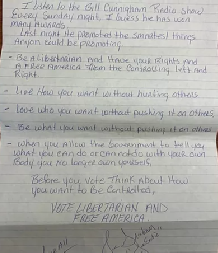 I listen to the Bill Cunningham Radio Show
Every Sunday night, I guess he has won
many Awards.
Last night he promoted the sanest things
Anyone could be promoting.
- Be A Libertarian and Have your Rights and
A Free America Than the Controlling Left and
Right.
- Live How you want without hurting others
- Love who you want without pushing it on others,
- Be what you want without pushing it on others
- When you Allow the Government to tell you
what you can do or can not do with your own
Body you no longer own yourself.
Before you Vote Think About How
you want to Be Controlled,
VOTE LIBERTARIAN AND
FREE AMERICA